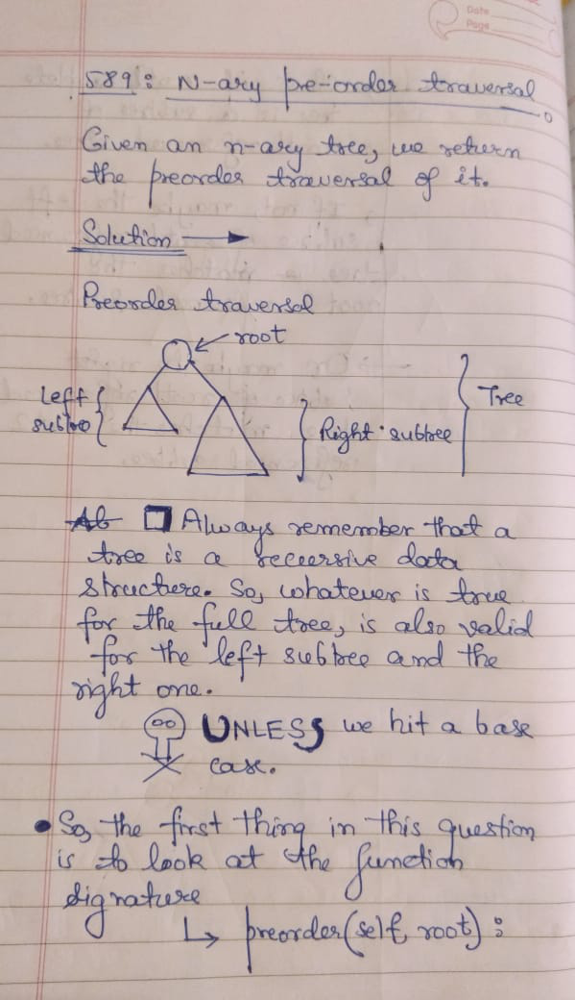 Date
Page
589: N-ary pre-order traversal
Given an n-ary tree, we return
the preorder traversal of it.
Solution →
Preorder traversal
root
Left
subtree
Right subtree
Tree
Always remember that a
tree is a recursive data
structure. So, whatever is true
for the full tree, is also valid
for the left subtree and the
right one.
UNLESS we hit a base
case.
• So, the first thing in this question
is to look at the function
signature
↳ preorder(self, root):